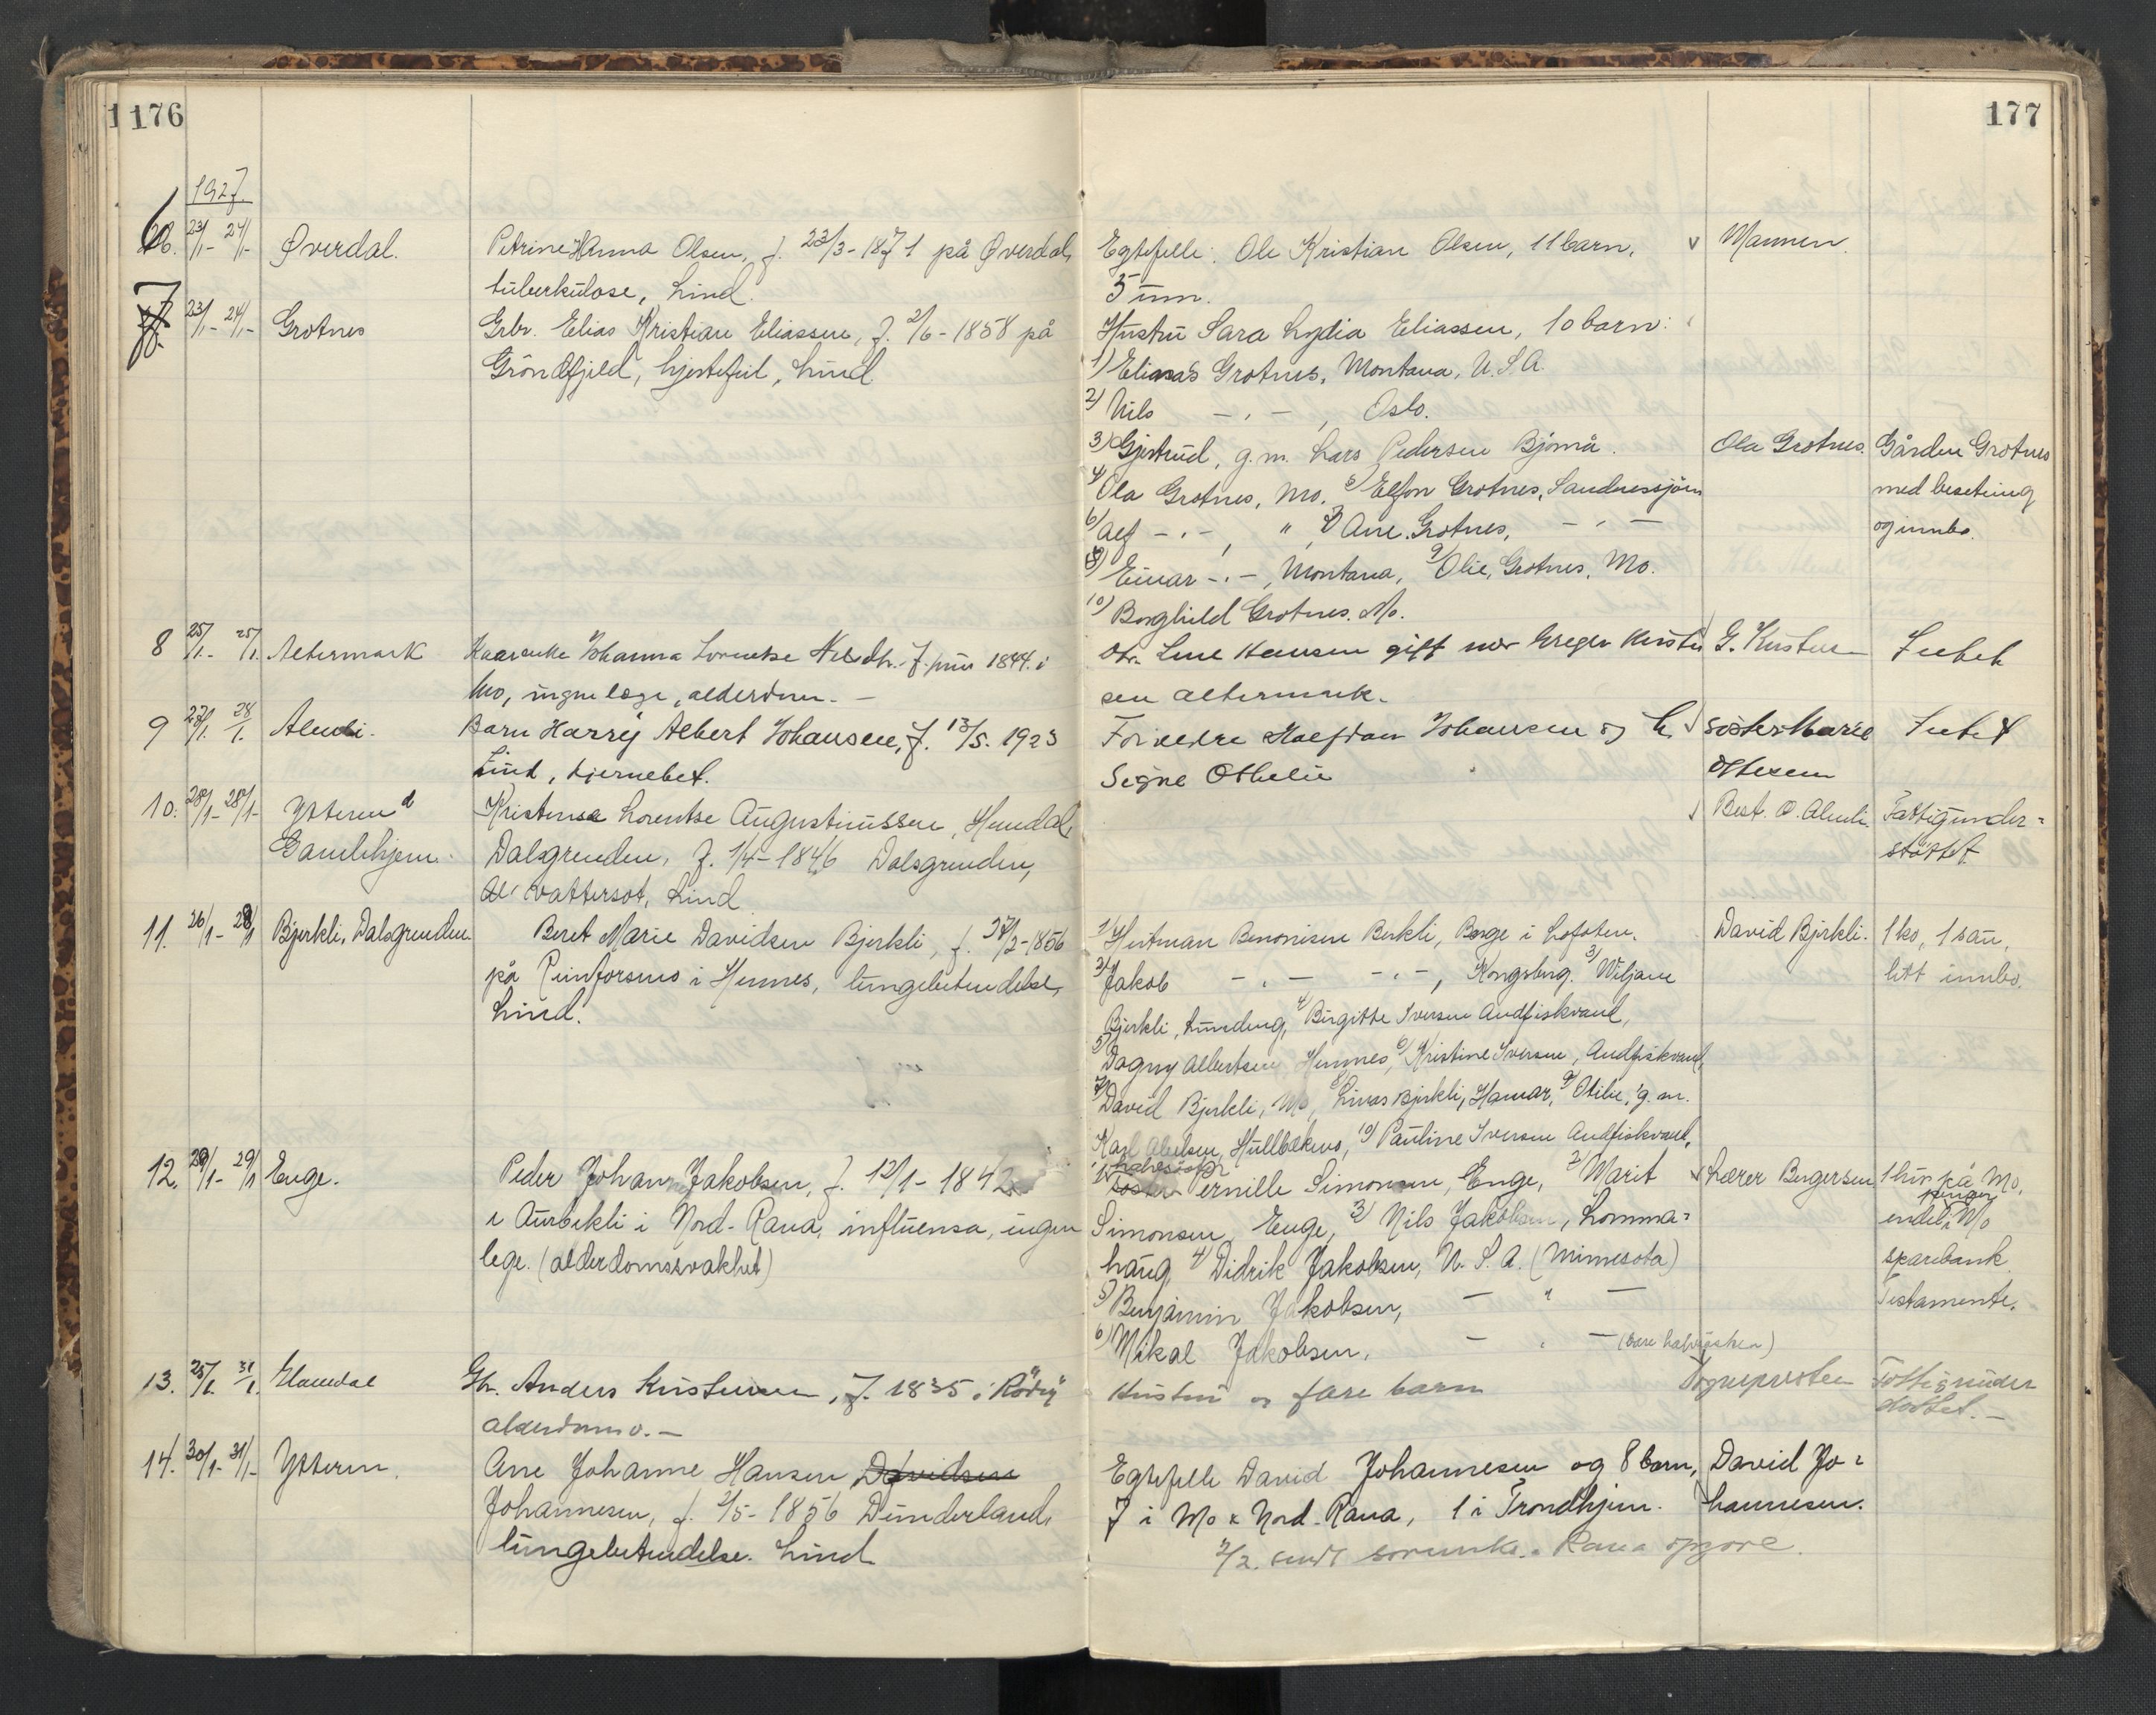 176
177
1927.
6. 23/1- 24/1- Øverdal. Petrine Anna Olsen, f. 23/3-1871 på Øverdal, Egtefelle: Ole Kristian Olsen, 11 barn, v Mannen.
tuberkulose, Lind. 5 um.
7 23/1- 24/1- Grotnes Grbr. Elias Kristian Eliassen, f. 2/6-1858 på Hustru Sara Lydia Eliassen, 10 barn:
Gröndfjeld, hjertefeil, Lind 1) Elias Grotnes, Montana, U.S.A.
2) Nils -"- , Oslo.
3) Gjertrud, g.m. Lars Pedersen Bjömå. Ola Grotnes. Gården Grotnes
4) Ola Grotnes, Mo. 5) Elfon Grotnes, Sandnessjöen med besetning
6) Alf -"-, " 7) Arne Grotnes, -"- og innbo.
8) Einar -"-, Montana, 9) Olie, Grotnes, Mo.
10) Borghild Grotnes. Mo.
8 25/1- 25/1. Altermark Johanna Lorentse Nilsdtr. f. 1844 i Dtr. Line Hansen gift med Kristen G. Kristensen Intet
Mo, ingen læge, alderdom. - sen Altermark.
9 27/1. 28/1. Almli. Barn Harry Albert Johansen, f. 13/5. 1923 Foreldre Halfdan Johansen og h. v söster Marie Intet
Lind, hjernebet. Signe Othelie Ottesen
10. 28/1- 28/1- Ytteren Kristense Lorentse Augustinussen, Hemdal, v Best. O. Almli. Fattigunder-
Gamlehjem. Dalsgrenden, f. 1/4-1846 Dalsgrenden, støttet
vattersot, Lind
11. 26/1- 28/1 Bjerkli, Dalsgrenden. Beret Marie Davidsen Bjerkli, f. 27/2-1856 1) Hertman Benonisen Berkli, Borge i Lofoten. David Bjerkli. 1 ko, 1 sau,
på Reinforsnes i Hemnes, lungebetendelse, 2) Jakob -"- -"-, Kongsberg. 3) Wiljam litt innbo.
Lind. Bjerkli, 4) Birgitte Iversen Andfiskvand,
5) Dagny Albertsen, Hemnes, 6) Kristine Iversen, Andfiskvand,
7) David Bjerkli, Mo, 8) Linas Bjerkli, Hamar, 9) Otilie, g.m.
Karl Hullbekmo, 10) Pauline Iversen Andfiskvand.
12. 28/1- 29/1 Enge. Peder Johan Jakobsen, f. 12/1-1842 1) halvsöster Pernille Simonsen, Enge, 2) Marit v Lærer Bergersen 1 hus på Mo,
i Aurbekli i Nord-Rana, influensa, ingen Simonsen, Enge, 3) Nils Jakobsen, Lomma- endel penger i Mo
lege. (alderdomssvakhet) haug 4) Didrik Jakobsen, U.S.A. (Minnesota) sparebank.
5) Benjamin Jakobsen, - " - Testamente.
6) Mikal Jakobsen, - " - (bare halvsösken)
13. 25/1. 31/1. Hauedal Gbr. Anders Kristensen, f. 1835 i Röd Hustru og flere barn Sognepresten Fattigunder
alderdoms. - støttet. -
14. 30/1- 31/1- Ytteren. Ane Johanne Hansen Davidsen Egtefelle David Johannesen og 8 barn, David Jo-
Johannesen, f. 2/5-1856 Dunderland, 7 i Mo & Nord-Rana, 1 i Trondhjem. hannesen.
lungebetendelse. Lind
2/2. sendt sorenskr. i Rana opgave.